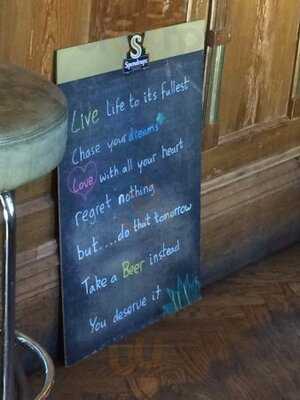 S
Live life to its fullest
Chase your dreams
Love with all your heart
regret nothing
but....do that tomorrow
Take a Beer instead
You deserve it